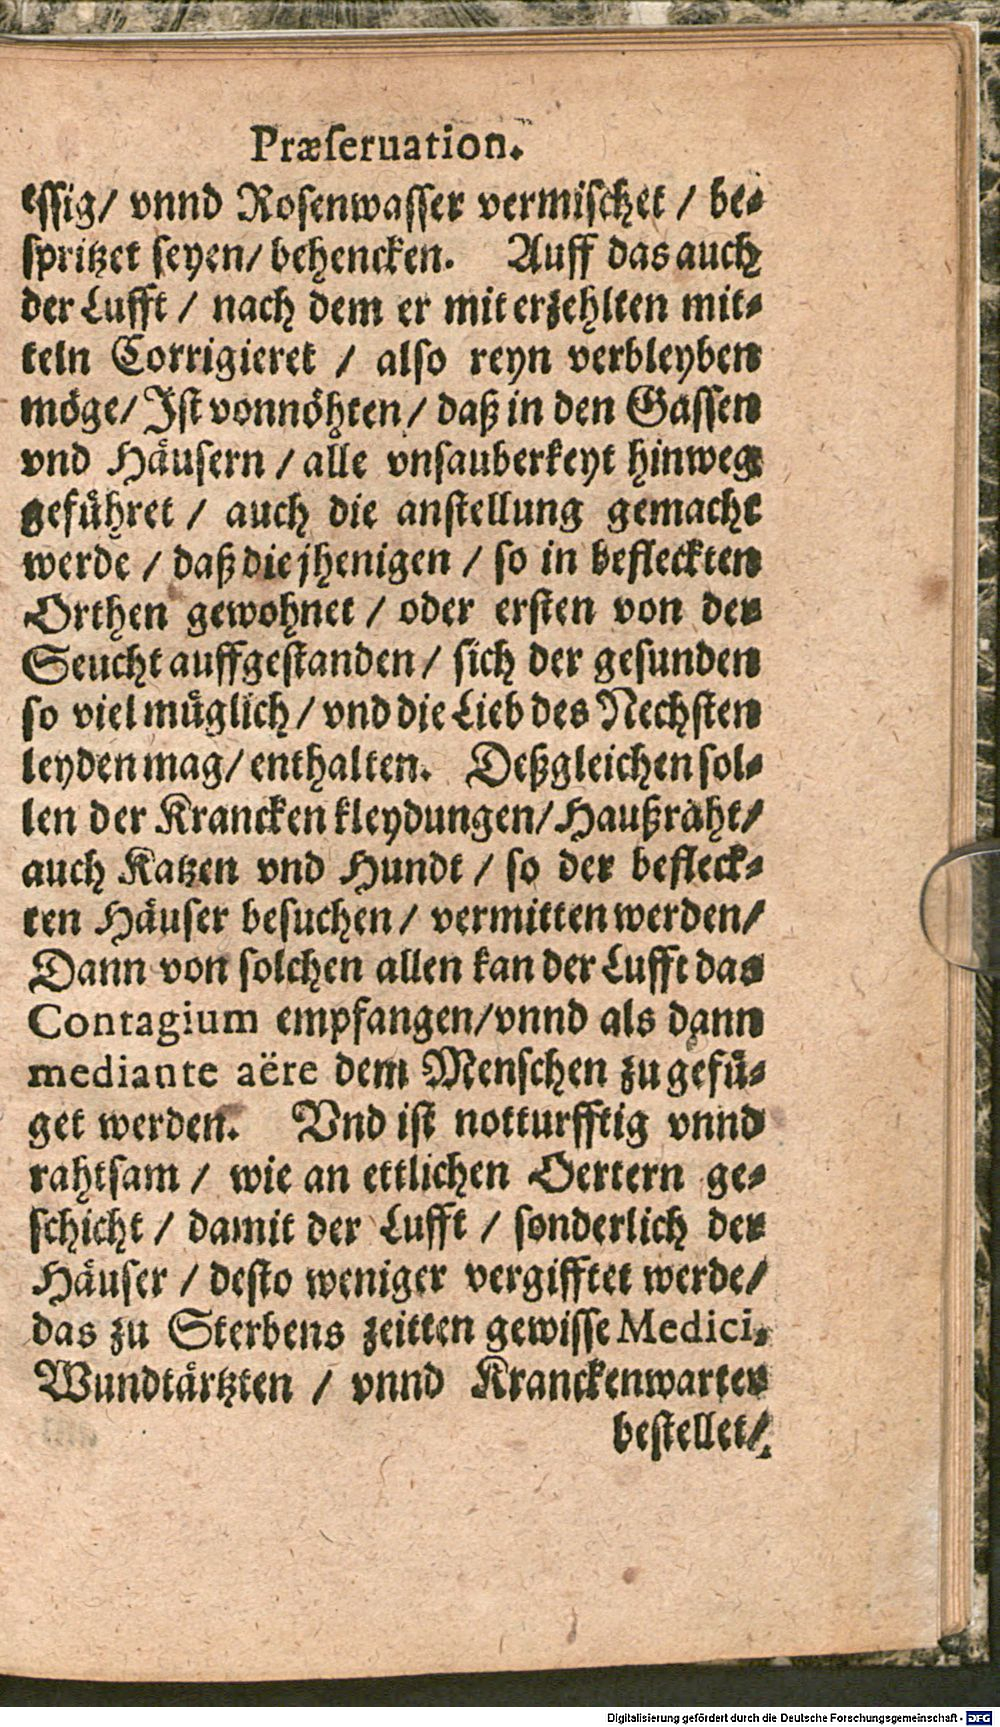 Præſeruation.
eſſig/ vnnd Roſenwaſſer vermiſchet / be-
ſpritzet ſeyen/ behencken. Auff das auch
der Lufft / nach dem er mit erzehlten mit-
teln Corrigieret / alſo reyn verbleyben
möge/ Iſt vonnöhten/ daß in den Gaſſen
vnd Häuſern / alle vnſauberkeyt hinweg
geführet / auch die anſtellung gemacht
werde / daß die jhenigen / ſo in befleckten
Orthen gewohnet / oder erſten von der
Seucht auffgeſtanden / ſich der geſunden
ſo viel müglich / vnd die Lieb des Nechſten
leyden mag/ enthalten. Deßgleichen ſol-
len der Krancken kleydungen/ Haußraht/
auch Katzen vnd Hundt / ſo der befleck-
ten Häuſer beſuchen / vermitten werden/
Dann von ſolchen allen kan der Lufft das
Contagium empfangen/ vnnd als dann
mediante aëre dem Menſchen zu gefü-
get werden. Vnd iſt notturfftig vnnd
rahtſam / wie an ettlichen Oertern ge-
ſchicht / damit der Lufft / ſonderlich der
Häuſer / deſto weniger vergifftet werde/
das zu Sterbens zeitten gewiſſe Medici,
Wundtärtzten / vnnd Kranckenwarter
beſtellet/
Digitalisierung gefördert durch die Deutsche Forschungsgemeinschaft - DFG